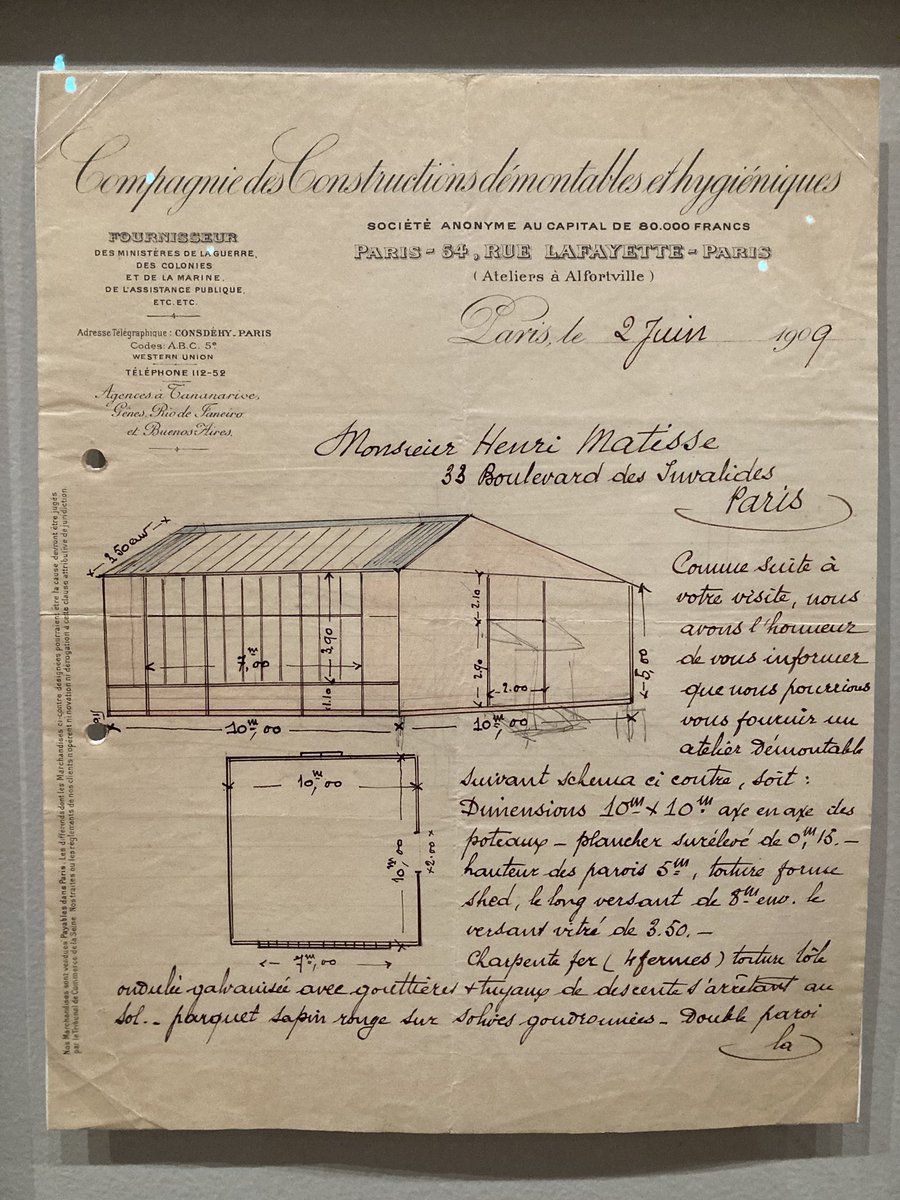 Compagnie des Constructions démontables et hygiéniques
SOCIÉTÉ ANONYME AU CAPITAL DE 80.000 FRANCS
PARIS - 54, RUE LAFAYETTE - PARIS
(Ateliers à Alfortville)
FOURNISSEUR
DES MINISTÈRES DE LA GUERRE,
DES COLONIES
ET DE LA MARINE,
DE L'ASSISTANCE PUBLIQUE,
ETC. ETC.
Adresse Télégraphique : CONSDÉHY-PARIS
Codes: A.B.C. 5e
WESTERN UNION
TÉLÉPHONE 112-52
Agences à Tananarive,
Gênes, Rio de Janeiro
et Buenos Aires.
Paris, le 2 Juin 1909
Monsieur Henri Matisse
33 Boulevard des Invalides
Paris
3.50 env
7,m00
2.90
1.10
2.10
2.90
2.00
5,00
10m,00
10m,00
Comme suite à
votre visite, nous
avons l'honneur
de vous informer
que nous pourrions
vous fournir un
atelier Démontable
suivant schema ci contre, soit :
Dimensions 10m x 10m axe en axe des
poteaux - plancher surélevé de 0,m15. -
hauteur des parois 5m, toiture forme
shed, le long versant de 8m env. le
versant vitré de 3.50. -
Charpente fer (4 fermes) toiture tôle
ondulée galvanisée avec gouttières + tuyaux de descente s'arrêtant au
sol. - parquet sapin rouge sur solives goudronnées - Double paroi
la
10m,00
10m,00
x2.00x
7m,00
Nos Marchandises sont vendues Payables dans Paris : Les différends dont les Marchandises ci-contre désignées pourraient être la cause devront être jugés
par le Tribunal de Commerce de la Seine. Nos traites ou les règlements de nos clients n'opèrent ni novation ni dérogation à cette clause attributive de juridiction